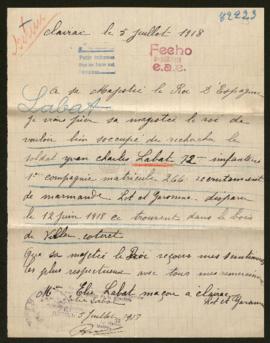 82223
Clairac le 5 juillet 1918
Fecho
e.a.c.
A sa Majesté le Roi D'Espagne
Labat
je vous prie sa majesté le roi de
vouloir bien soccupé de recherche le
soldat yvan charles Labat 72 - infanterie
1e compagnie matricule 266 recrutement
de marmande Lot et Garonne disparu
le 12 juin 1918 se trouvent dans le bois
de Villers coteret
Que sa majesté le Roi reçoive mes sentiments
les plus respectueuse avec tous mes
Mr Elie Labat maçon a clairac
Elie Labat Lot et Garonne
5 juillet 1918